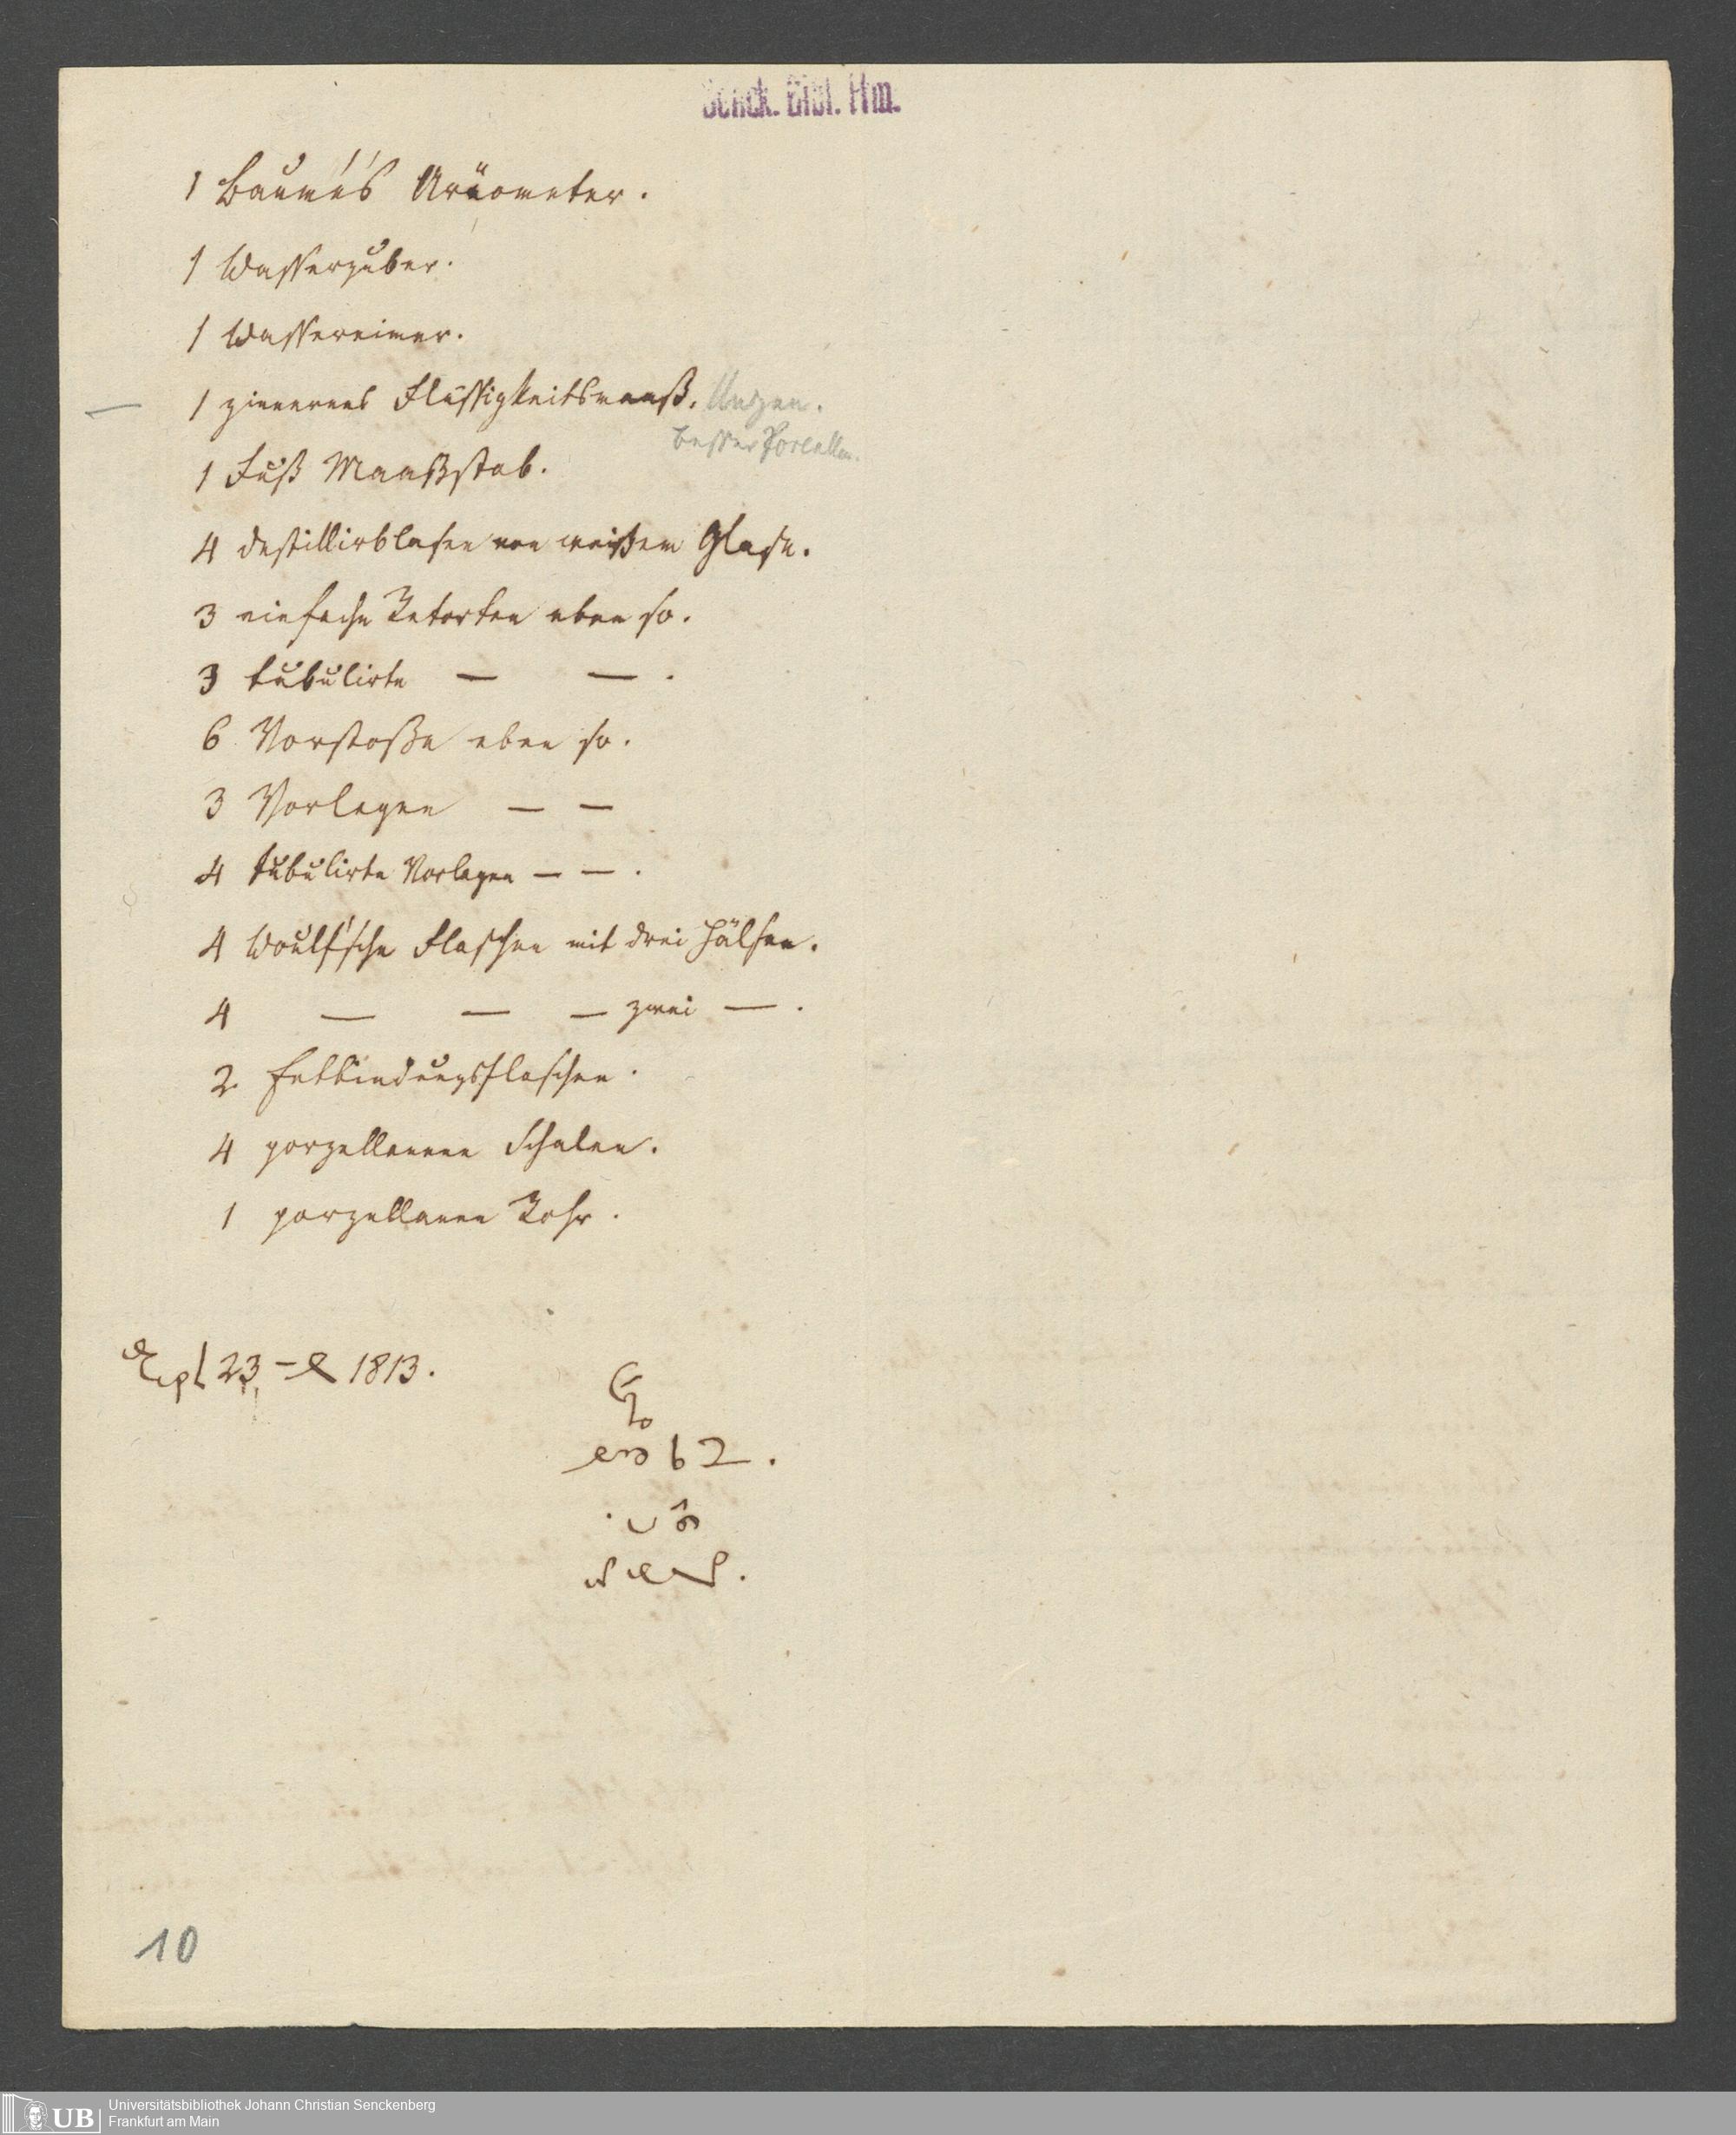 Senck. Bibl. Ffm.
1 Baumé's Aräometer.
1 Wasserzuber.
1 Wassereimer.
1 zinnernes Flüssigkeitsmaaß. Unzen.
besser Porcellan.
1 Fuß Maaßstab.
4 Destillirblasen von weißem Glase.
3 einfache Retorten eben so.
3 tubulirte — — .
6 Vorstoße eben so.
3 Vorlagen — —
4 tubulirte Vorlagen — — .
4 Woulf'sche Flaschen mit drei Hälsen.
4 — — — zwei — .
2 Entbindungsflaschen.
4 porzellanene Schalen.
1 porzellanen Rohr.
23 1813.
10
UB Universitätsbibliothek Johann Christian Senckenberg
Frankfurt am Main